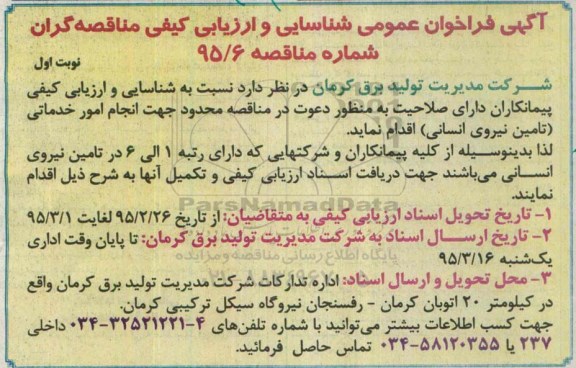 آگهی فراخوان عمومی شناسایی و ارزیابی کیفی مناقصه‌گران
شماره مناقصه ۹۵/۶
نوبت اول
شرکت مدیریت تولید برق کرمان در نظر دارد نسبت به شناسایی و ارزیابی کیفی
پیمانکاران دارای صلاحیت به منظور دعوت در مناقصه محدود جهت انجام امور خدماتی
(تامین نیروی انسانی) اقدام نماید.
لذا بدینوسیله از کلیه پیمانکاران و شرکتهایی که دارای رتبه ۱ الی ۶ در تامین نیروی
انسانی می‌باشند جهت دریافت اسناد ارزیابی کیفی و تکمیل آنها به شرح ذیل اقدام
نمایند.
۱- تاریخ تحویل اسناد ارزیابی کیفی به متقاضیان: از تاریخ ۹۵/۲/۲۶ لغایت ۹۵/۳/۱
۲- تاریخ ارسال اسناد به شرکت مدیریت تولید برق کرمان: تا پایان وقت اداری
یک‌شنبه ۹۵/۳/۱۶
۳- محل تحویل و ارسال اسناد: اداره تدارکات شرکت مدیریت تولید برق کرمان واقع
در کیلومتر ۲۰ اتوبان کرمان - رفسنجان نیروگاه سیکل ترکیبی کرمان.
جهت کسب اطلاعات بیشتر می‌توانید با شماره تلفن‌های ۴-۳۲۵۲۱۲۲۱-۰۳۴ داخلی
۲۳۷ یا ۵۸۱۲۰۳۵۵-۰۳۴ تماس حاصل فرمائید.
ParsNamadData
پایگاه اطلاع رسانی مناقصه و مزایده